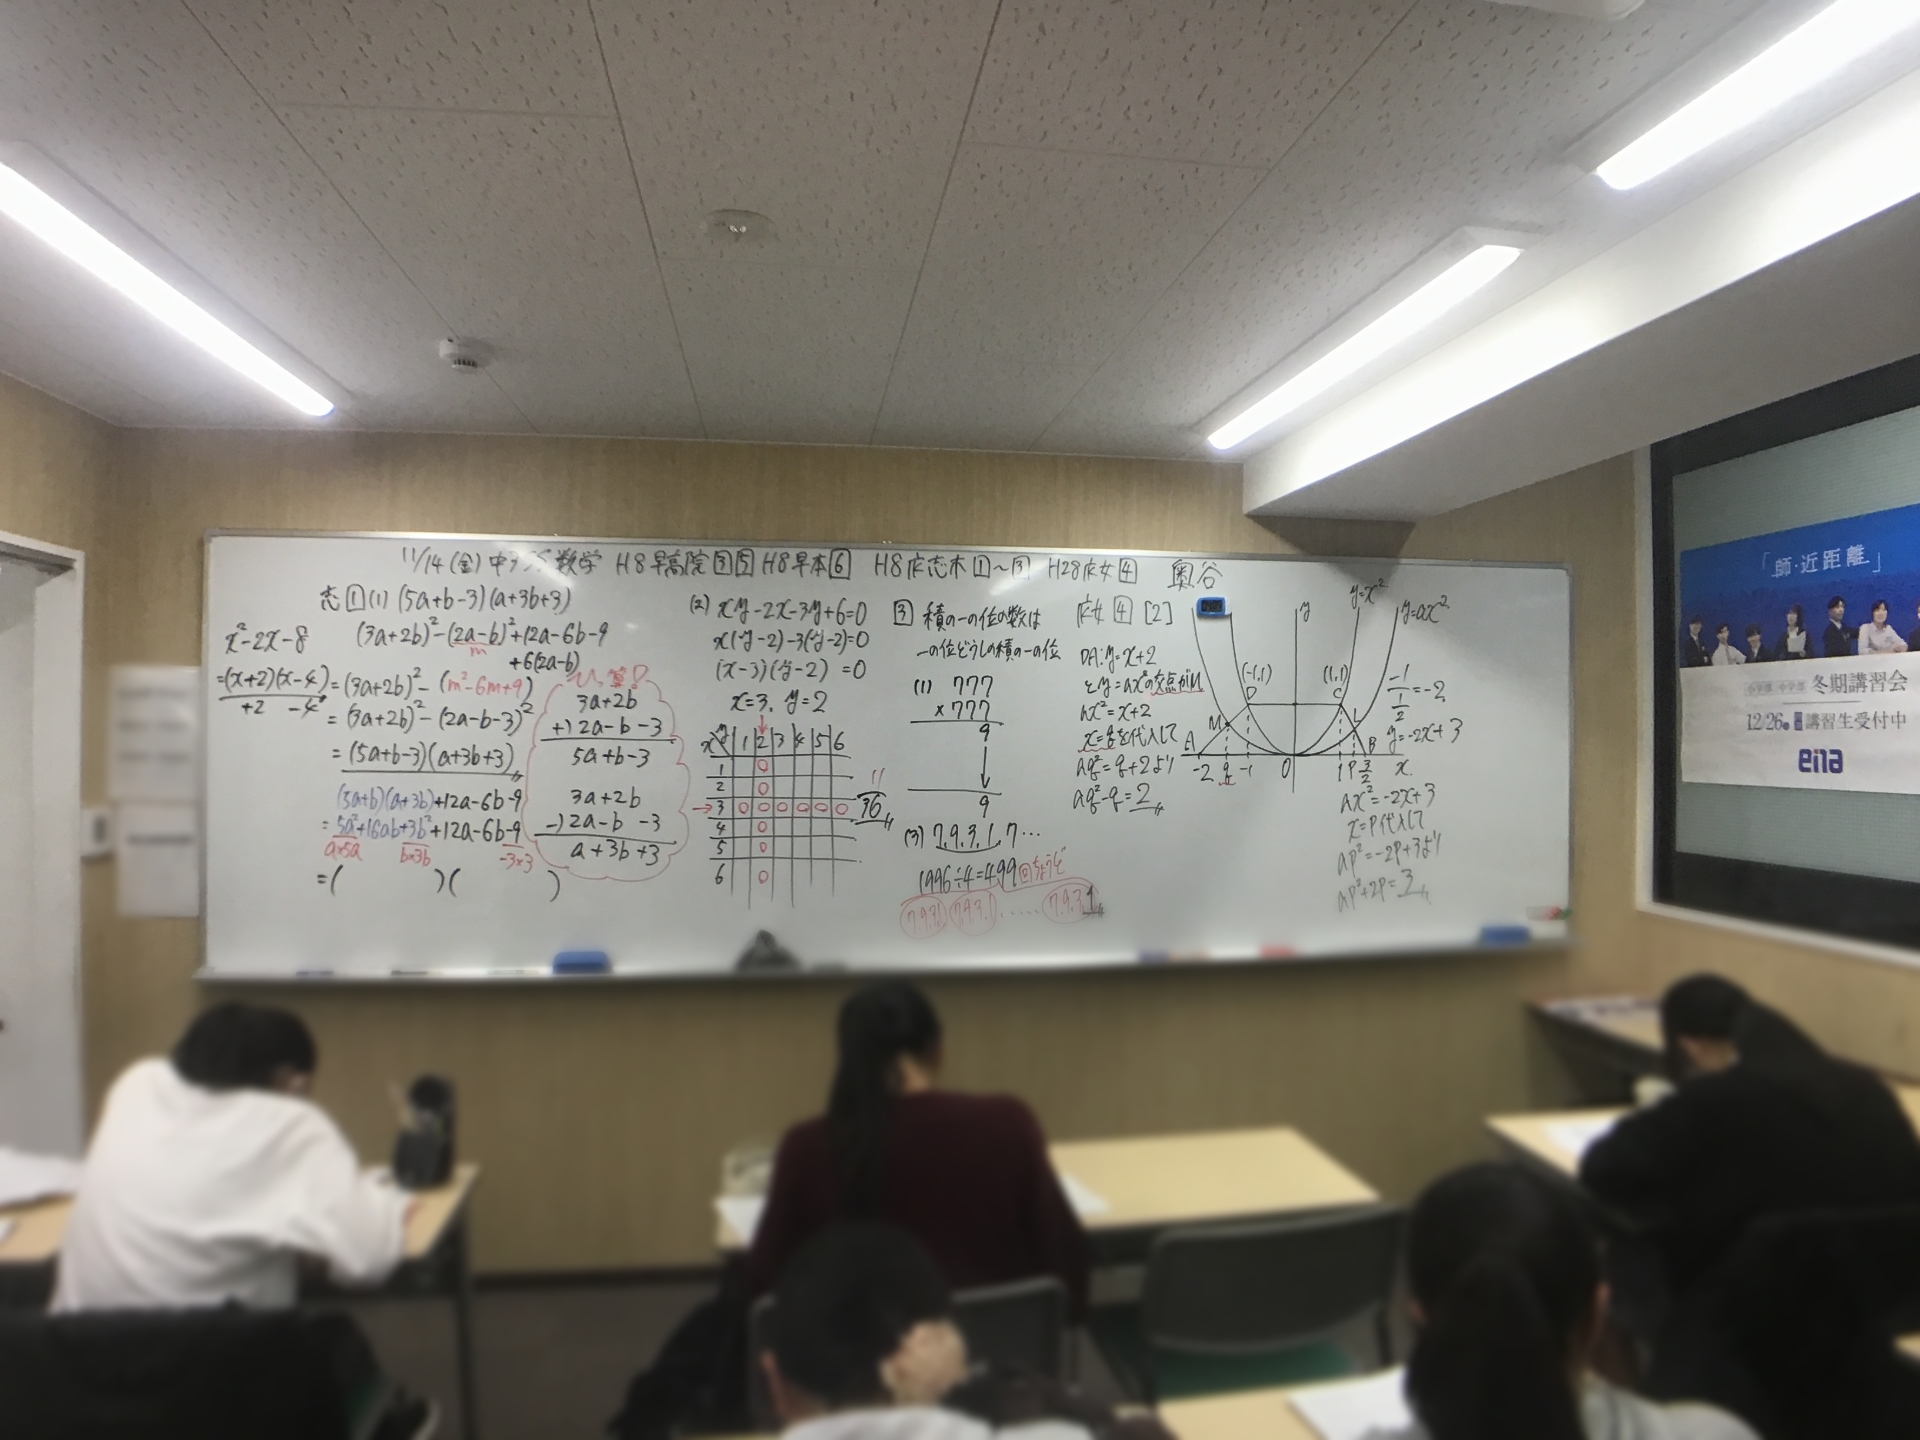 11/14(金)中3 数学 H8早高院③⑤H8早本⑥ H8慶志木①~③ H28慶女④ 奥谷
志①(1) (5a+b-3)(a+3b+3)
x²-2x-8
=(x+2)(x-4)
+2 -4
(3a+2b)²-(2a-b)²+12a-6b-9
m
+6(2a-b)
=(3a+2b)²-(m²-6m+9)
=(3a+2b)²-(2a-b-3)²
=(5a+b-3)(a+3b+3)
(5a+b)(a+3b)+12a-6b-9
=5a²+16ab+3b²+12a-6b-9
a×5a b×3b -3×3
=( )( )
ひっ算!
3a+2b
+)2a-b-3
5a+b-3
3a+2b
-)2a-b-3
a+3b+3
(2) xy-2x-3y+6=0
x(y-2)-3(y-2)=0
(x-3)(y-2)=0
x=3, y=2
x y 1 2 3 4 5 6
1 ○
2 ○
3 ○ ○ ○ ○ ○ ○
4 ○
5 ○
6 ○
11
36
③ 積の一の位の数は
一の位どうしの積の一の位
(1) 777
×777
9
9
(3) 7.9.3.1.7…
1996÷4=499回ちょうど
7.9.3.1 7.9.3.1 ..... 7.9.3.1
慶女④[2]
DA:y=x+2
とy=ax²の交点がM
ax²=x+2
x=qを代入して
aq²=q+2より
aq²-q=2
y y=x² y=ax²
(-1,1) (1,1)
D C
M L
A B
-2 q -1 0 1 P 3/2 x
-1
1/2
=-2
y=-2x+3
ax²=-2x+3
x=P代入して
ap²=-2p+3より
ap²+2p=3
「師・近距離」
小学部 中学部 冬期講習会
12/26 講習生受付中
ena